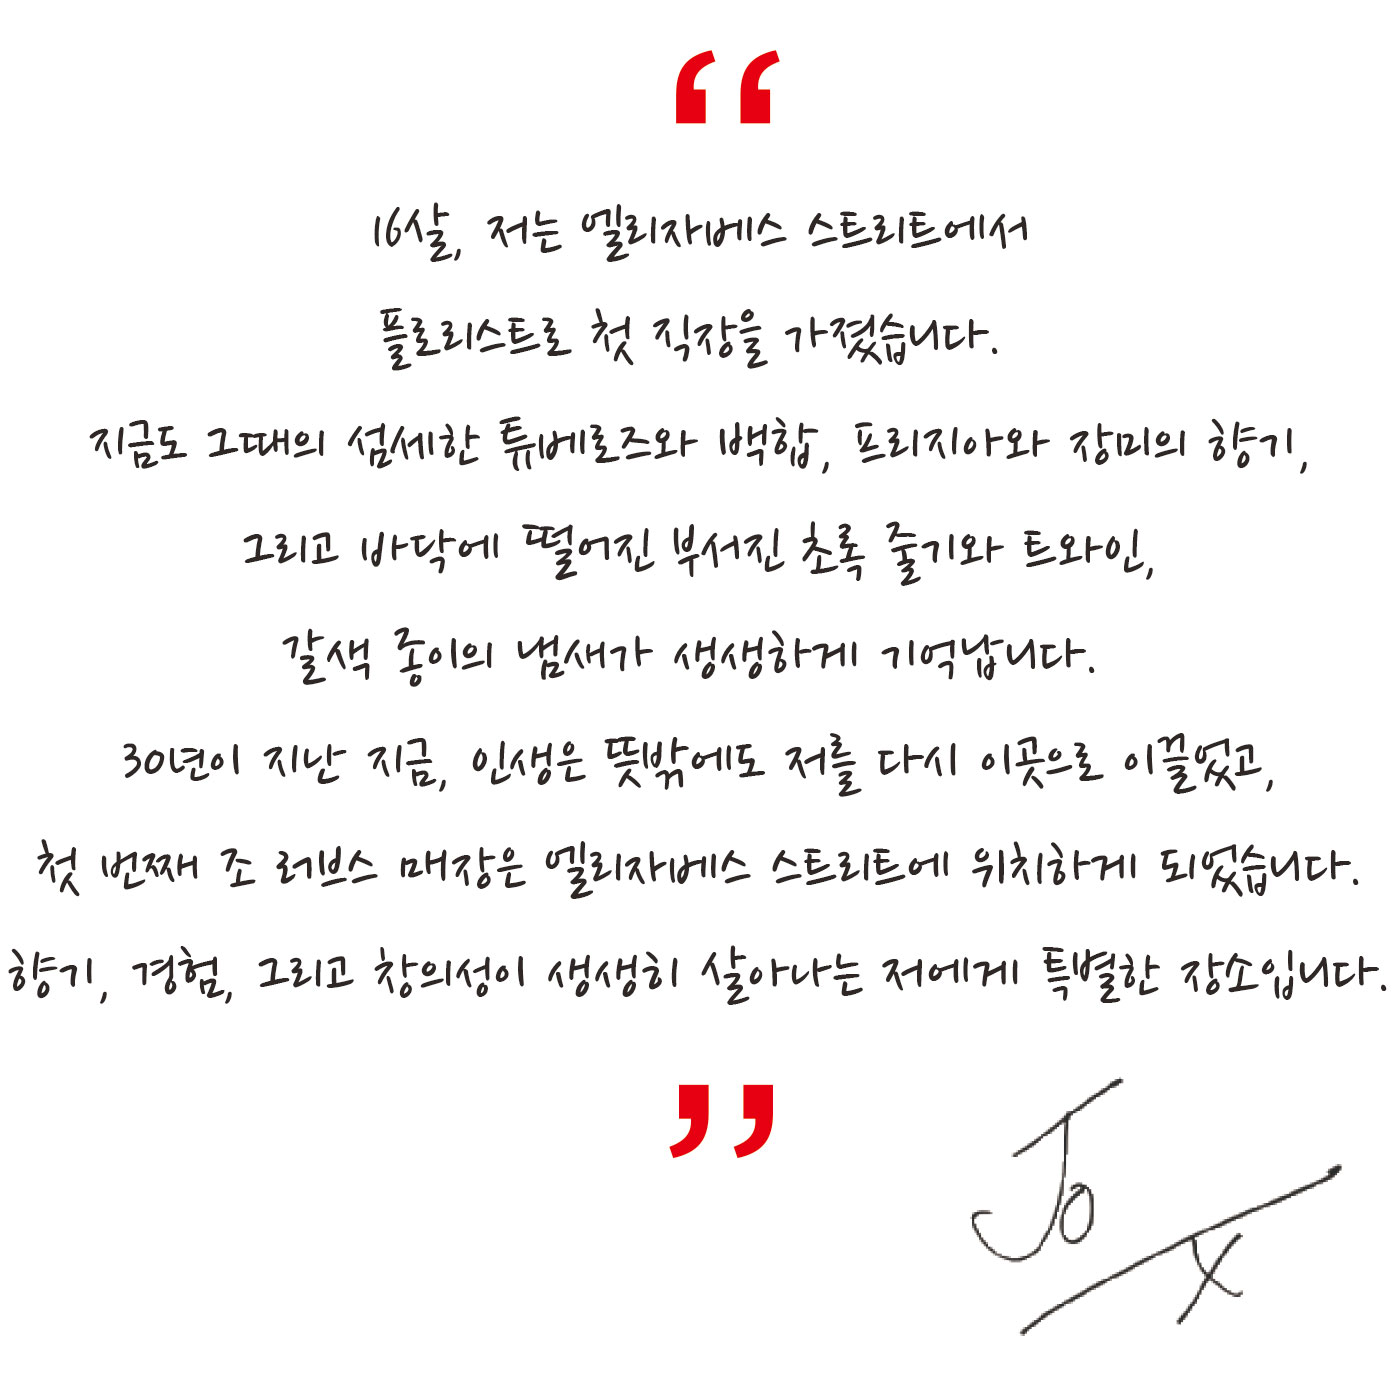 “
16살, 저는 엘리자베스 스트리트에서
플로리스트로 첫 직장을 가졌습니다.
지금도 그때의 섬세한 튜베로즈와 백합, 프리지아와 장미의 향기,
그리고 바닥에 떨어진 부서진 초록 줄기와 트와인,
갈색 종이의 냄새가 생생하게 기억납니다.
30년이 지난 지금, 인생은 뜻밖에도 저를 다시 이곳으로 이끌었고,
첫 번째 조 러브스 매장은 엘리자베스 스트리트에 위치하게 되었습니다.
향기, 경험, 그리고 창의성이 생생히 살아나는 저에게 특별한 장소입니다.
”
Jo
x